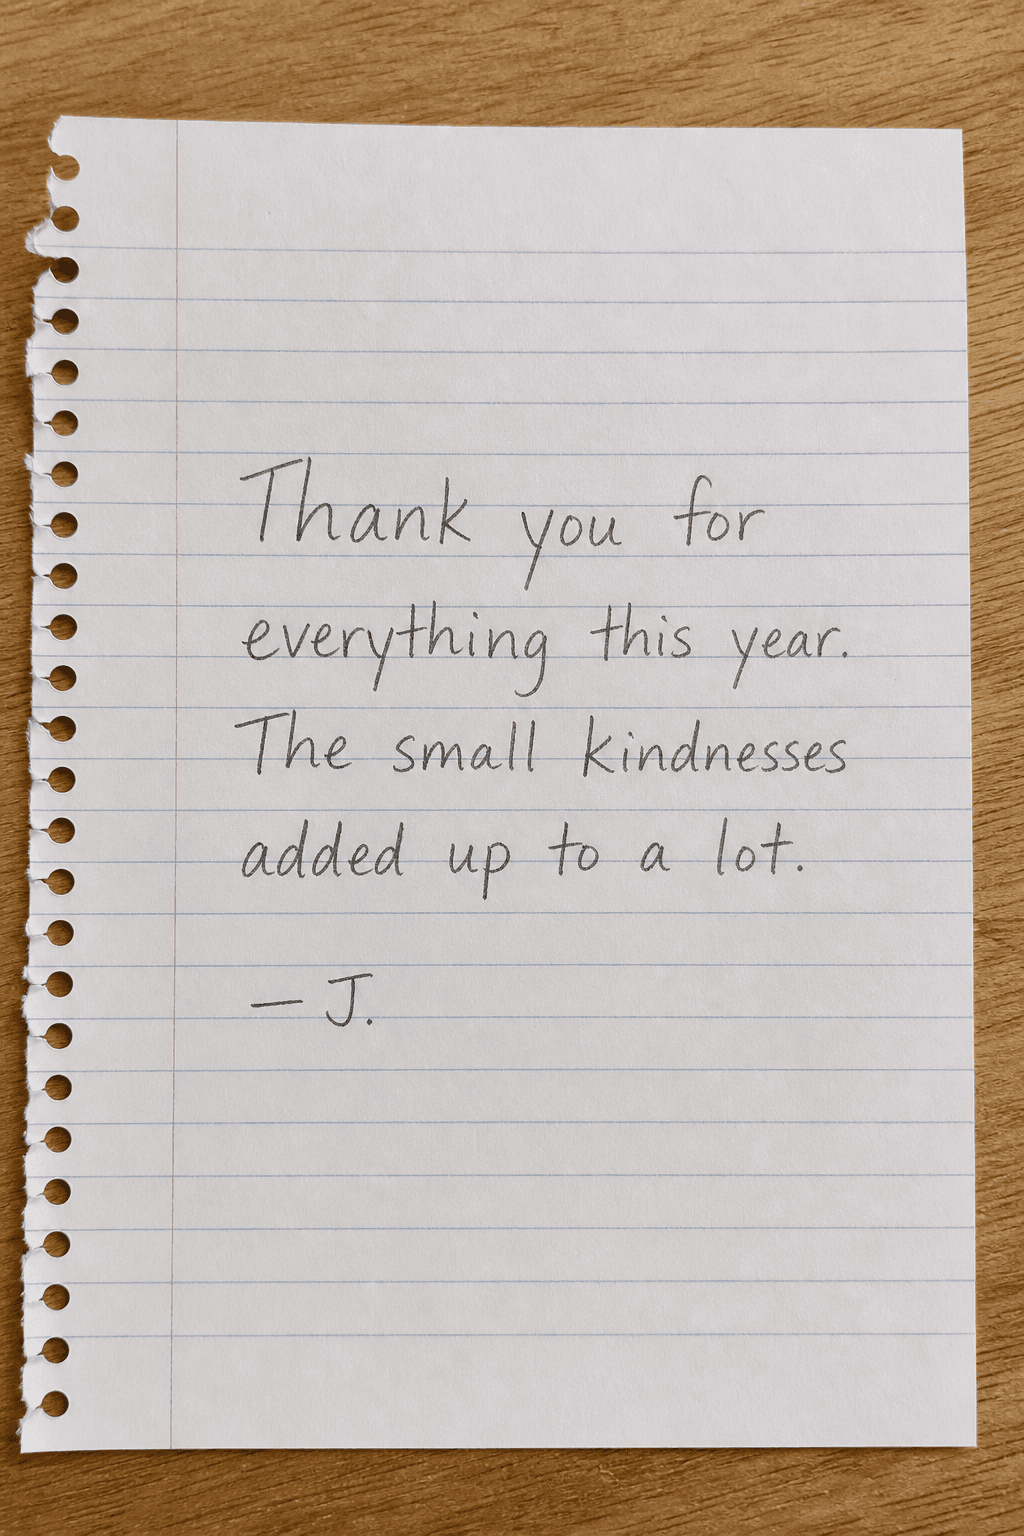 Thank you for
everything this year.
The small kindnesses
added up to a lot.
— J.